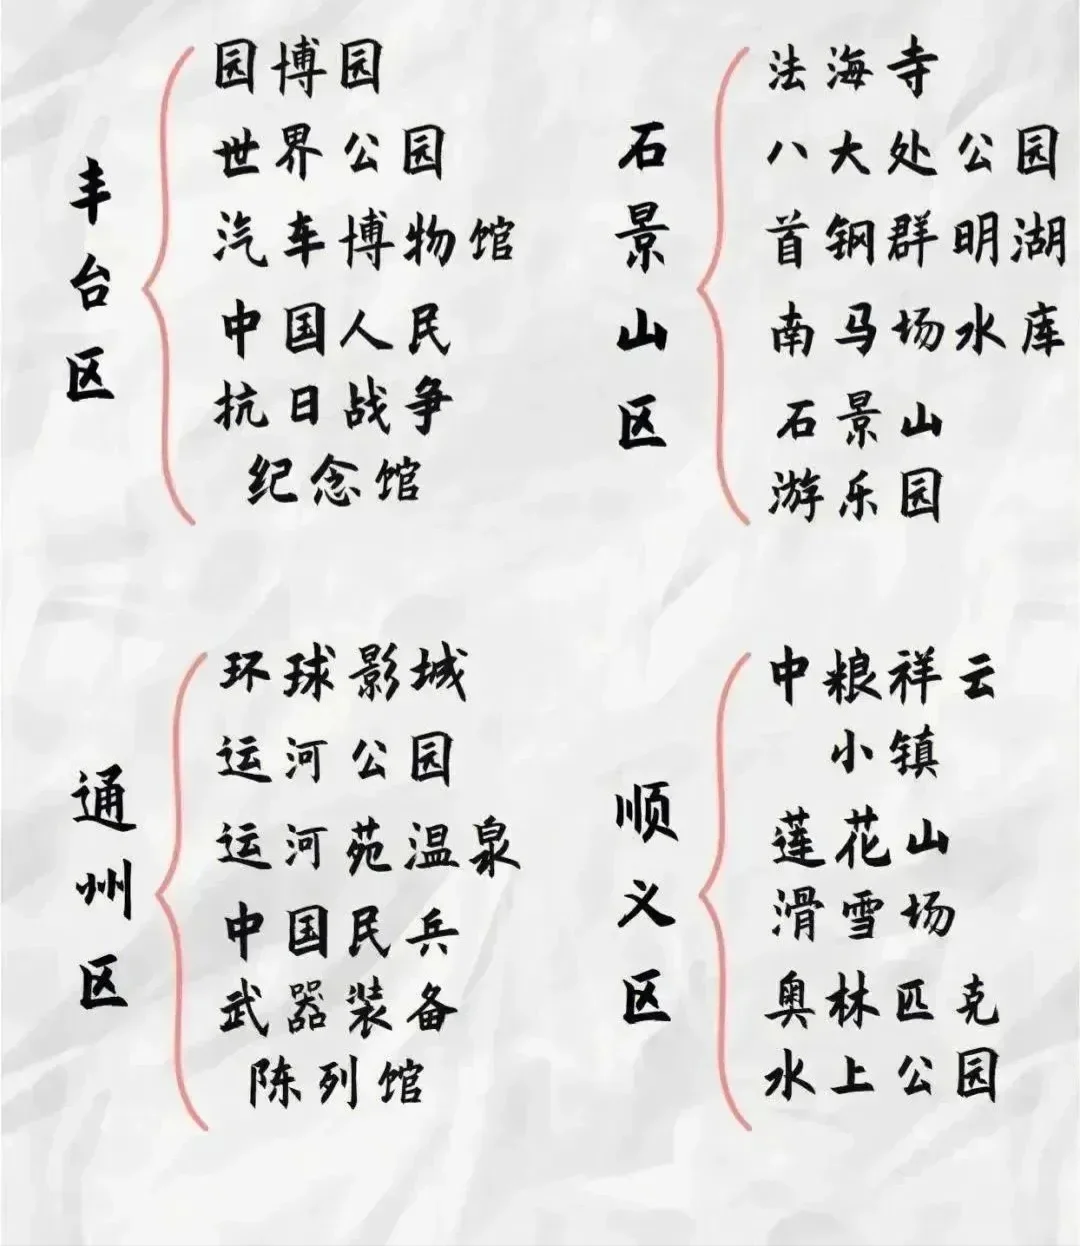 丰台区
园博园
世界公园
汽车博物馆
中国人民
抗日战争
纪念馆
石景山区
法海寺
八大处公园
首钢群明湖
南马场水库
石景山
游乐园
通州区
环球影城
运河公园
运河苑温泉
中国民兵
武器装备
陈列馆
顺义区
中粮祥云
小镇
莲花山
滑雪场
奥林匹克
水上公园